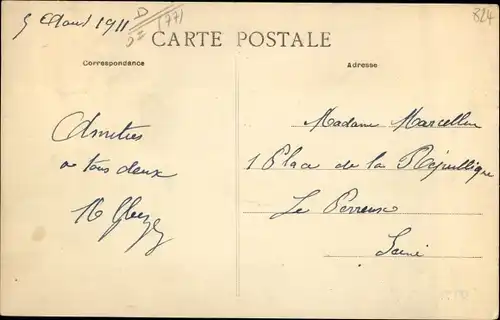 5 Aout 1911
(77)
824
CARTE POSTALE
Correspondance
Adresse
Amitiés
a tous deux
Madame Marcellin
1 Place de la République
Le Perreux
Seine